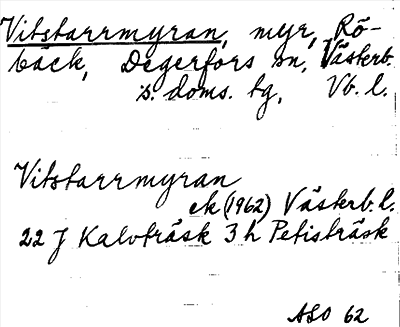 Vitstarrmyran, myr, Rö-
bäck, Degerfors sn, Västerb.
s. doms. tg, Vb. l.
Vitstarrmyran
ek (1962) Västerb. l.
22 J Kalvträsk 3 h Petisträsk
ASO 62